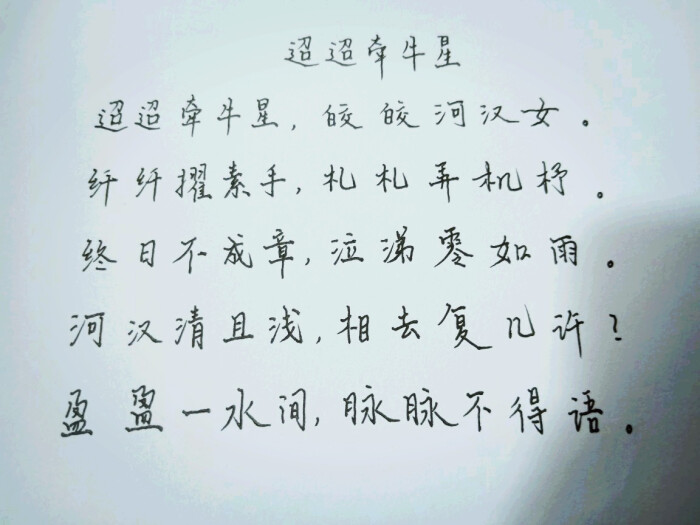 迢迢牵牛星
迢迢牵牛星，皎皎河汉女。
纤纤擢素手，札札弄机杼。
终日不成章，泣涕零如雨。
河汉清且浅，相去复几许？
盈盈一水间，脉脉不得语。